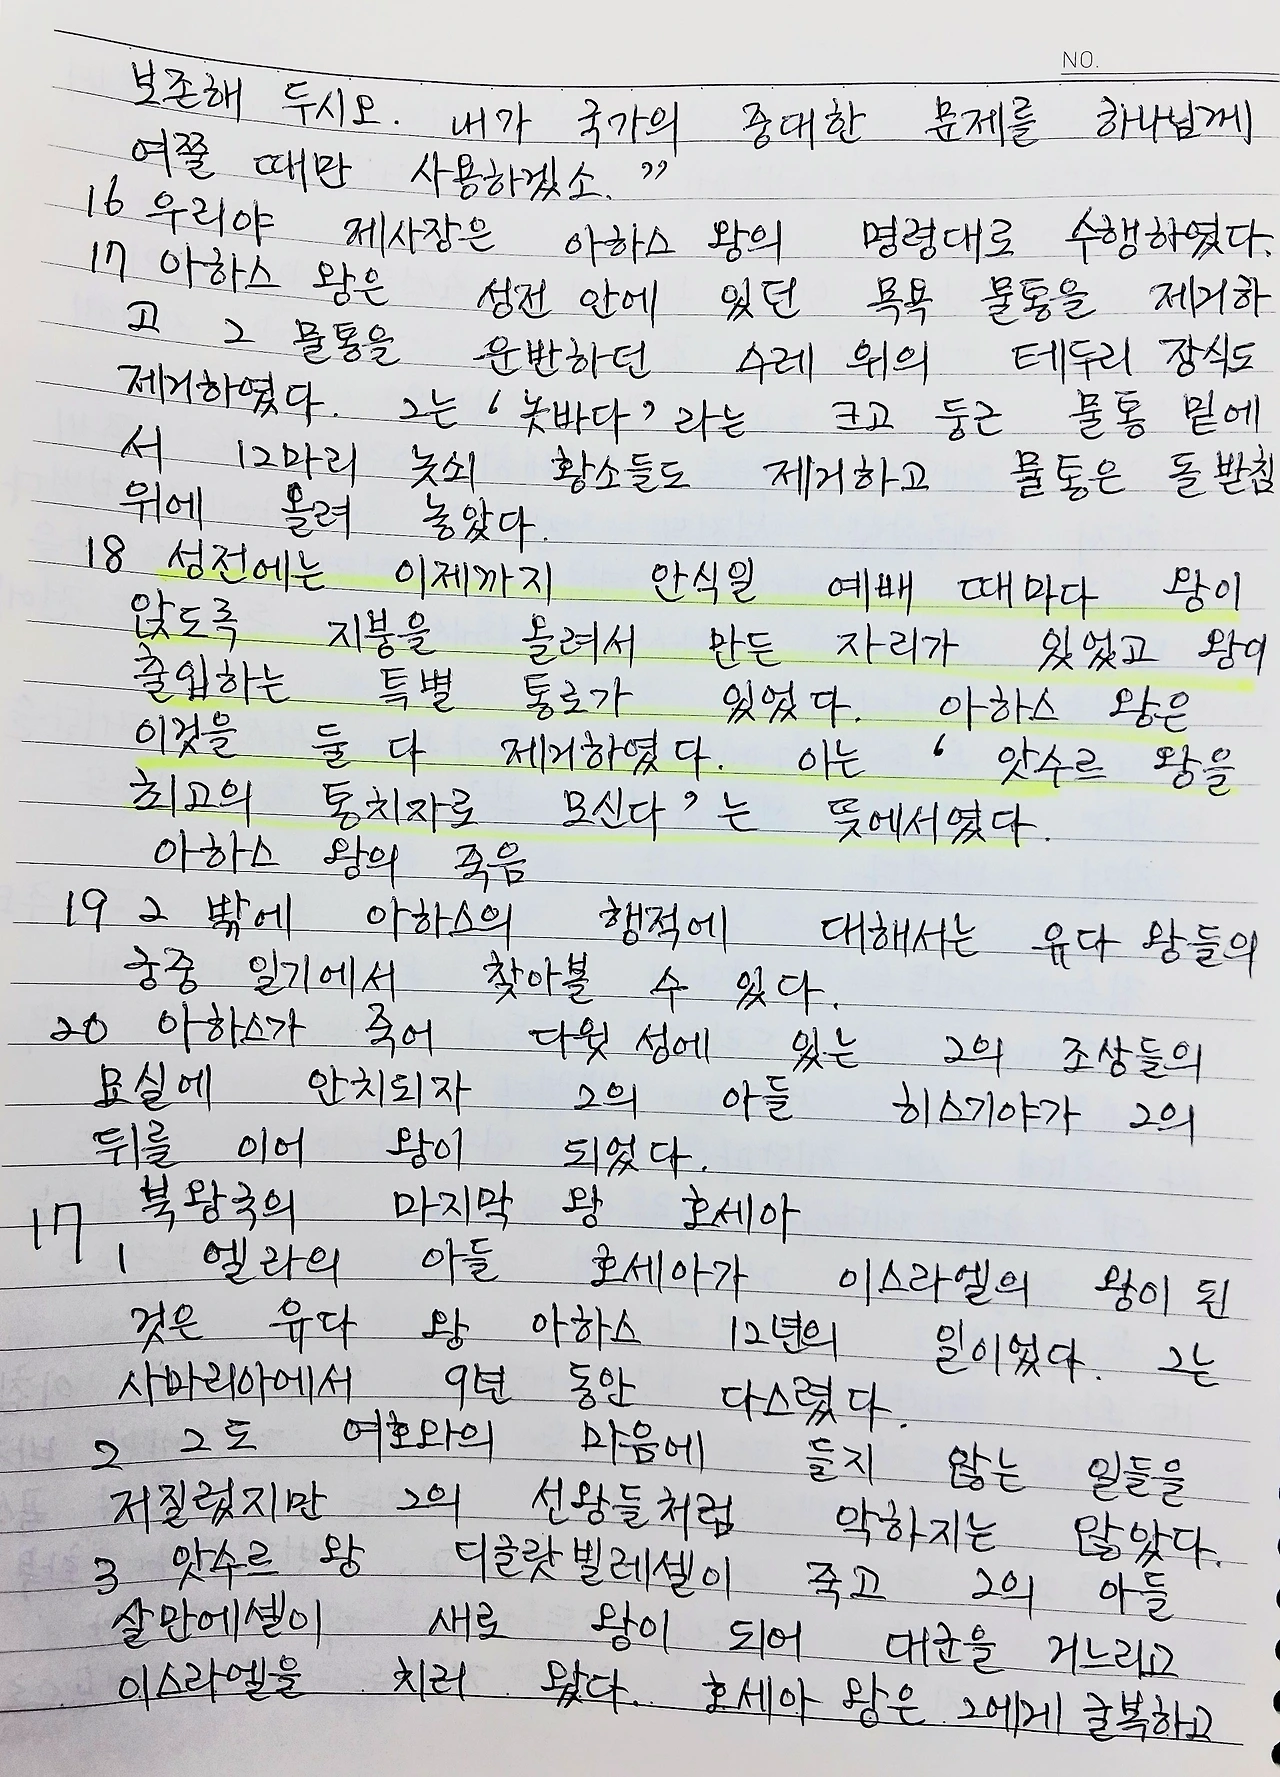 NO.
보존해 두시오. 내가 국가의 중대한 문제를 하나님께
여쭐 때만 사용하겠소.”
16 우리야 제사장은 아하스 왕의 명령대로 수행하였다.
17 아하스 왕은 성전 안에 있던 목욕 물통을 제거하
고 그 물통을 운반하던 수레 위의 테두리 장식도
제거하였다. 그는 ‘놋바다’라는 크고 둥근 물통 밑에
서 12마리 놋쇠 황소들도 제거하고 물통은 돌 받침
위에 올려 놓았다.
18 성전에는 이제까지 안식일 예배 때마다 왕이
앉도록 지붕을 올려서 만든 자리가 있었고 왕이
출입하는 특별 통로가 있었다. 아하스 왕은
이것을 둘 다 제거하였다. 이는 ‘앗수르 왕을
최고의 통치자로 모신다’는 뜻에서였다.
아하스 왕의 죽음
19 그 밖에 아하스의 행적에 대해서는 유다 왕들의
궁중 일기에서 찾아볼 수 있다.
20 아하스가 죽어 다윗 성에 있는 그의 조상들의
묘실에 안치되자 그의 아들 히스기야가 그의
뒤를 이어 왕이 되었다.
17 북왕국의 마지막 왕 호세아
1 엘라의 아들 호세아가 이스라엘의 왕이 된
것은 유다 왕 아하스 12년의 일이었다. 그는
사마리아에서 9년 동안 다스렸다.
2 그도 여호와의 마음에 들지 않는 일들을
저질렀지만 그의 선왕들처럼 악하지는 않았다.
3 앗수르 왕 디글랏빌레셀이 죽고 그의 아들
살만에셀이 새로 왕이 되어 대군을 거느리고
이스라엘을 치러 왔다. 호세아 왕은 그에게 굴복하고